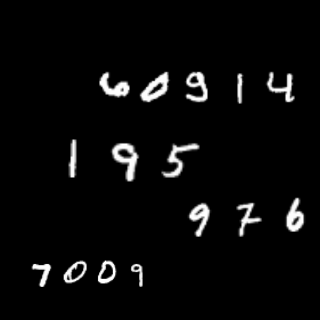 60914
195
976
7009